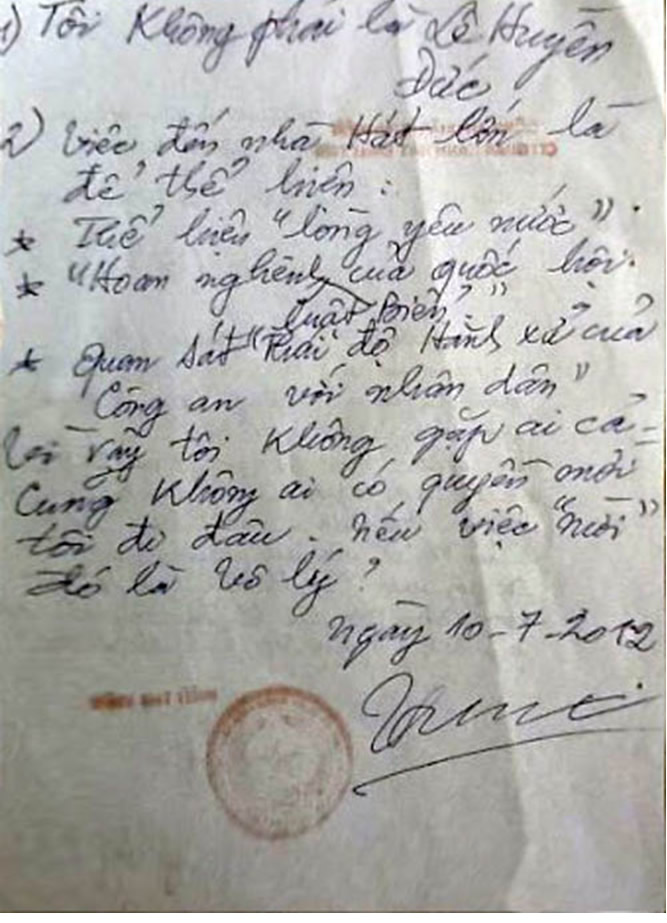 1) Tôi Không phải là Lê Huyền
Đức
2) Việc đến nhà Hát lớn là
để thể hiện :
* Thể hiện "lòng yêu nước".
* "Hoan nghênh của quốc hội.
luật Biển"
* Quan sát "thái độ Hành xử của
Công an với nhân dân"
Vì vậy tôi Không gặp ai cả -
Cũng Không ai có quyền mời
tôi đi đâu. Nếu việc "mời"
đó là vô lý?
Ngày 10-7-2012